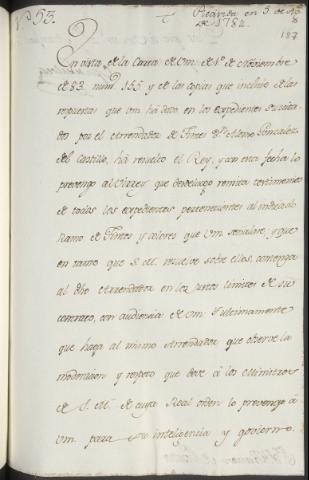 n.º 53.
Recivida en 3. de
de 1784.
187
En vista de la Carta de Vm. de 1.º de Noviembre
de 83. num.º 155 y de las copias que incluio de las
respuestas que Vm ha dado en los expedientes suscita-
dos por el Arrendador de Tintes D.n Alonso Gonzalez
del Castillo, há resuelto el Rey, y con esta fecha lo
prevengo al Virrey que desde luego remita testimonios
de todos los expedientes pertenecientes al indicado
Ramo de Tintes y colores que Vm señalare y que
en tanto que S. M. resuelve sobre ellos, contenga
al dho Arrendador en los justos limites de su
contrato, con audiencia de Vm. Y ultimamente
que haga al mismo Arrendador que observe la
moderacion y respeto que deve á los Ministros
de S. M. de cuya Real orden lo prevengo á
Vm para su inteligencia y govierno.